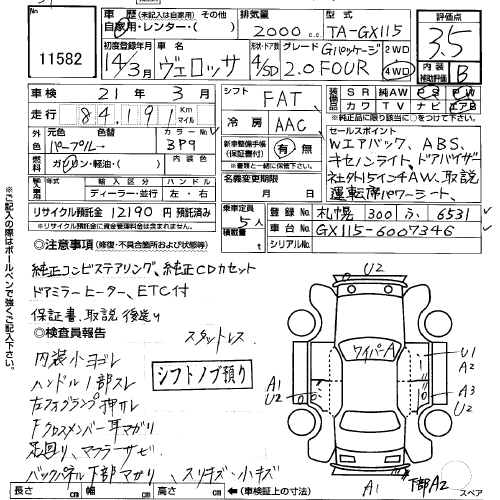 11582
車歴 (未記入は自家用) その他
自家用・レンター・( )
排気量 2000 c.c.
型式 TA-GX115
評価点 3.5
初度登録年月 14年3月
車名 ヴェロッサ
形状・ドア数 4/SD
グレード Gパッケージ 2.0 FOUR
2WD
4WD
内装補助評価 B
車検 21年3月
走行 84,191 Km マイル
シフト FAT
冷房 AAC
装備品 SR 純AW PS PW
カワ TV ナビ エアB
※純正品に限り○をつけて下さい。
外色 元色 パープル 色替
カラー No. 3P9
燃料 ガソリン・軽油・( )
内装色
新車整備手帳(保証書付) 有・無
※書類と一緒に保管して下さい。
セールスポイント
Wエアバック、ABS、
キセノンライト、ドアバイザー
社外15インチAW、取説
運転席パワーシート、
輸入車用 年式 輸入区分 ディーラー・並行 ハンドル 左・右
名義変更期限 月 日
リサイクル預託金 12190 円 預託済み
※リサイクル預託金に資金管理料金は含まれません。
乗車定員 5人
積載数量 t
登録No. 札幌 300 ふ 6531
車台No. GX115-6007346
シリアルNo.
◎注意事項 (修復・不具合箇所および状態等)
純正コンビステアリング、純正CDカセット
ドアミラーヒーター、ETC付
保証書、取説 後送り
◎検査員報告
スタットレス
内装小ヨゴレ
ハンドル1部スレ
シフトノブ預り
左フォグランプ押れ
Fクロスメンバー耳マガリ
足回り、マフラーサビ
バックパネル下部マガリ、スリキズ・小キズ
U2
ワイパーA
U1
A2
A1
U2
A3
U2
A1
下部A2
スペア
長さ cm 幅 cm 高さ cm ←(車検証上の寸法)
※ご記入の際はボールペンで強くご記入下さい。